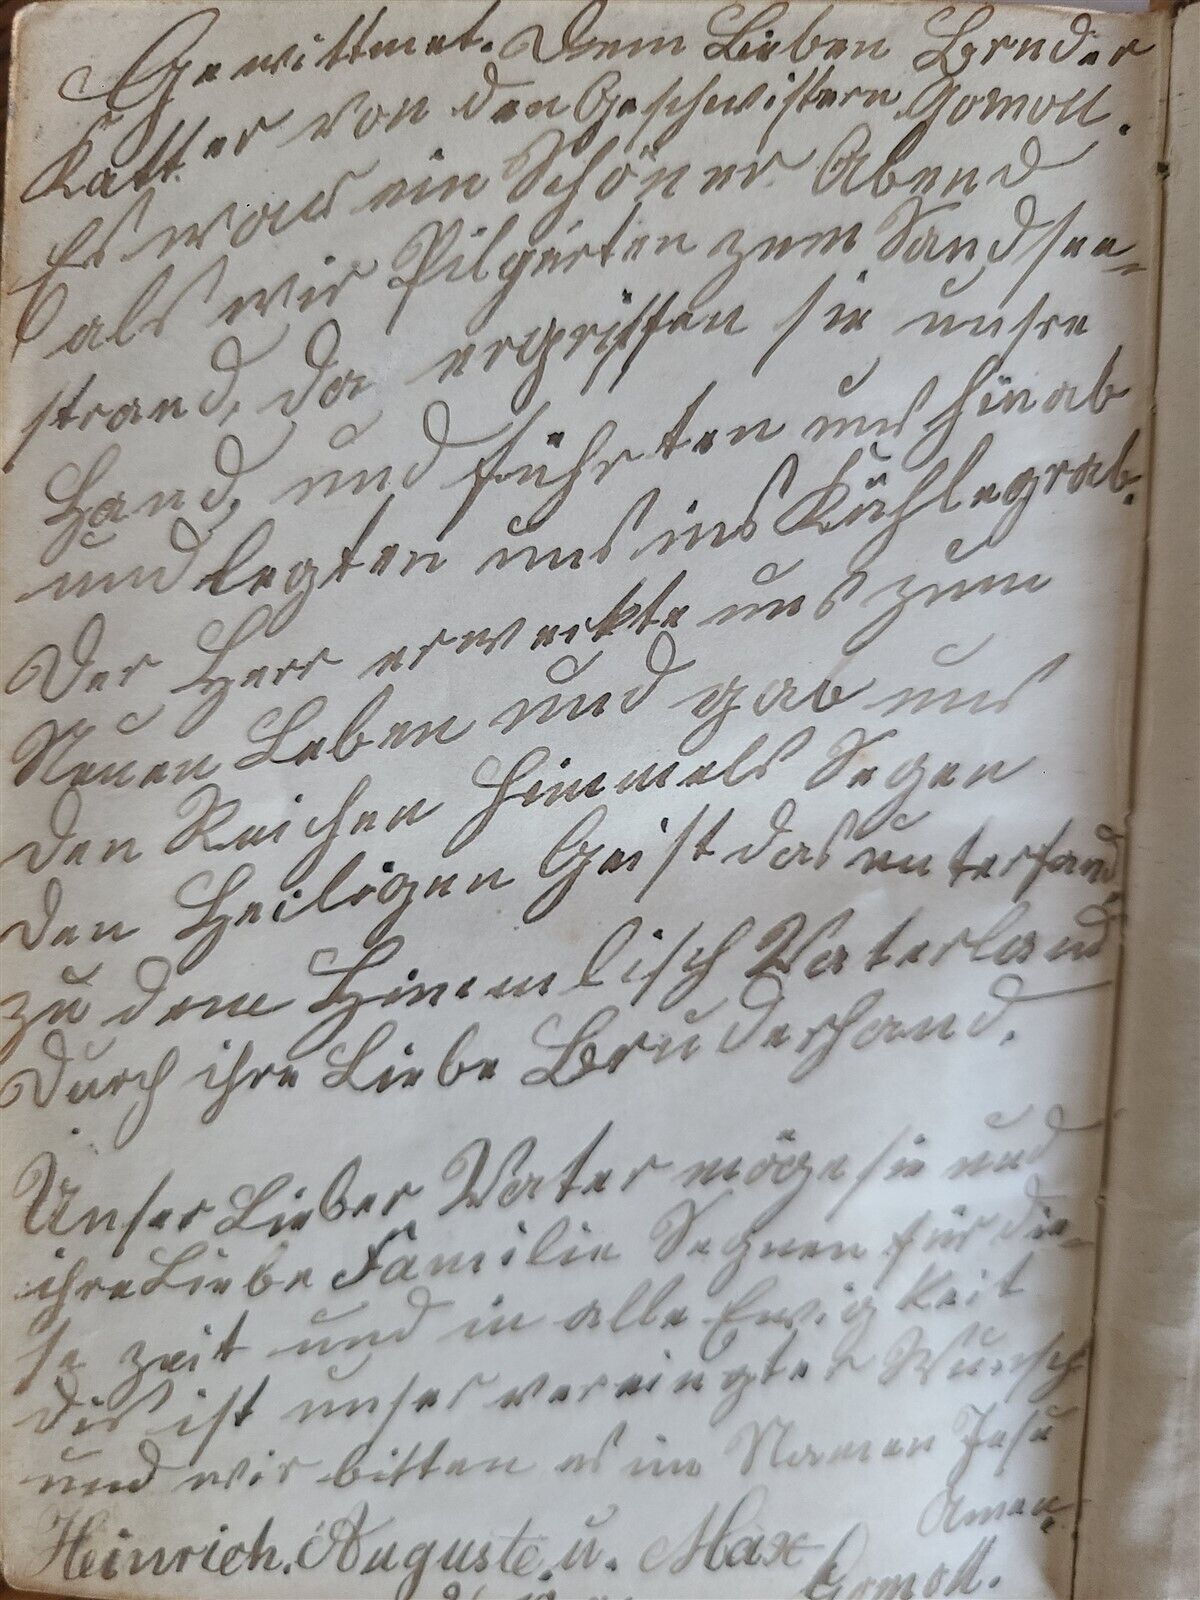 Gewittmet. Dem Lieben Bruder
Katter von den Geschwistern Gomoll.
Es war ein Schöner Abend
als wir Pilgerten zum Sandsee-
strand, da ergriffen sie unsre
Hand, und führten uns hinab
und legten uns ins Kühlegrab.
Der Herr erweckte uns zum
Neuen Leben und gab uns
den Reichen Himmels Segen
den Heiligen Geist das unterfand,
zu dem Himmlisch Vaterland
Durch ihre Liebe Bruderhand.
Unser Lieber Vater möge sie und
ihre Liebe Familie Segnen für die-
se zeit und in alle Ewigkeit
dis ist unser vereingter Wunsch
und wir bitten es im Namen Jesu
Amen.
Heinrich, Auguste u. Max
Gomoll.